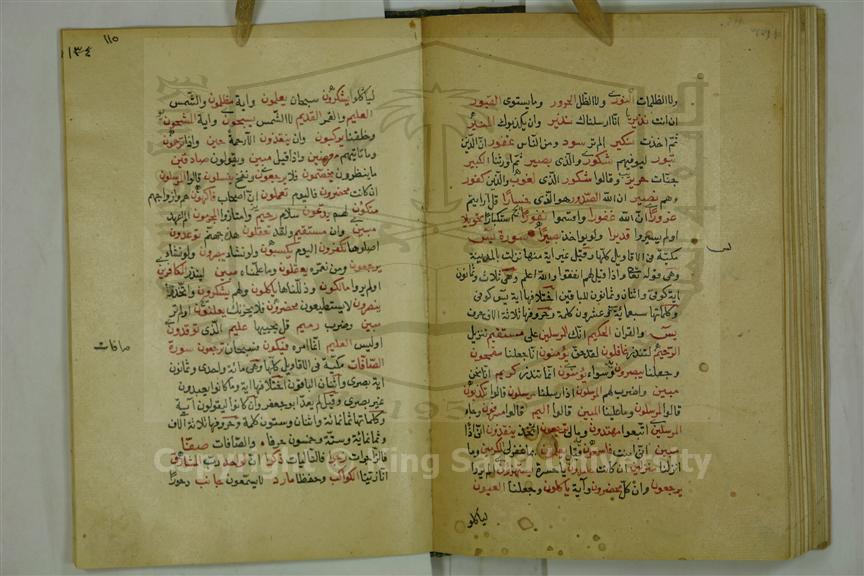 ولا الظلمات النور ولا الظل الحرور وما يستوى القبور
ان انت نذير انا ارسلناك نذير وان يكذبوك المنير
ثم اخذت نكير الم تر سود ومن الناس غفور ان الذين
تبور ليوفيهم شكور والذى بصير ثم اورثنا الكبير
جنات حرير وقالوا شكور الذى لغوب والذين كفور
وهم نصير ان الله الصدور هو الذى خسارا قل ارايتم
غرورا ان الله غفورا واقسموا نفورا استكبارا تحويلا
اولم يسيروا قديرا ولو يواخذ بصيرا سورة يس
مكية فى الاقاويل كلها وقيل غير آية منها نزلت بالمدينة
وهى قوله واذا قيل لهم انفقوا والله اعلم وهى ثلاث وثمانون
اية كوفى واثنان وثمانون للباقين اختلافها اية يس كوفى
وكلماتها سبعماية وعشرون كلمة وحروفها ثلاثة الاف حرف
يس والقران الحكيم انك المرسلين على مستقيم تنزيل
الرحيم لتنذر غافلون لقد حق يؤمنون انا جعلنا مقمحون
وجعلنا يبصرون وسواء يؤمنون انما تنذر كريم انا نحن
مبين واضرب لهم المرسلون اذ ارسلنا مرسلون قالوا تكذبون
قالوا المرسلون وما علينا المبين قالوا اليم قالوا مسرفون وجاء
المرسلين اتبعوا مهتدون ومالى ترجعون اتخذ ينقذون انى اذا
مبين انى امنت فاسمعون قيل يعلمون بما غفر لى المكرمين وما
انزلنا منزلين ان كانت خامدون يا حسرة يستهزؤن الم يروا
يرجعون وان كل محضرون وآية ياكلون وجعلنا العيون
لياكلو
يس
١١٥
١٣٤
لياكلوا يشكرون سبحان يعلمون واية مظلمون والشمس
العليم والقمر القديم لا الشمس يسبحون واية المشحون
وخلقنا يركبون وان ينقذون الا رحمة حين واذا ترحمون
وما تاتيهم معرضين واذا قيل مبين ويقولون صادقين
ما ينظرون يخصمون فلا يرجعون ونفخ ينسلون قالوا المرسلون
ان كانت محضرون فاليوم تعملون ان اصحاب فاكهون هم وازواجهم
متكئون لهم يدعون سلام رحيم وامتازوا المجرمون الم اعهد
مبين وان مستقيم ولقد تعقلون هذه جهنم توعدون
اصلوها تكفرون اليوم يكسبون ولو نشاء يبصرون ولو نشاء
يرجعون ومن نعمره يعقلون وما علمناه مبين لينذر الكافرين
اولم يروا مالكون وذللناها ياكلون ولهم يشكرون واتخذوا
ينصرون لا يستطيعون محضرون فلا يحزنك يعلنون اولم ير
مبين وضرب رميم قل يحييها عليم الذى توقدون
اوليس العليم انما امره فيكون فسبحان ترجعون سورة
الصافات مكية فى الاقاويل كلها وهى مائة واحدى وثمانون
اية بصرى واثنان الباقون اختلافها اية وما كانوا يعبدون
غير بصرى وقيل لم يعد ابو جعفر وان كانوا ليقولون آية
وكلماتها ثمانمائة واثنان وستون كلمة وحروفها ثلاثة الاف
وثمانمائة وستة وخمسون حرفا والصافات صفا
فالزاجرات زجرا فالتاليات ذكرا ان لواحد رب المشارق
انا زينا الكواكب وحفظا مارد لا يسمعون جانب دحورا
صافات
Copyright © King Saud University
195